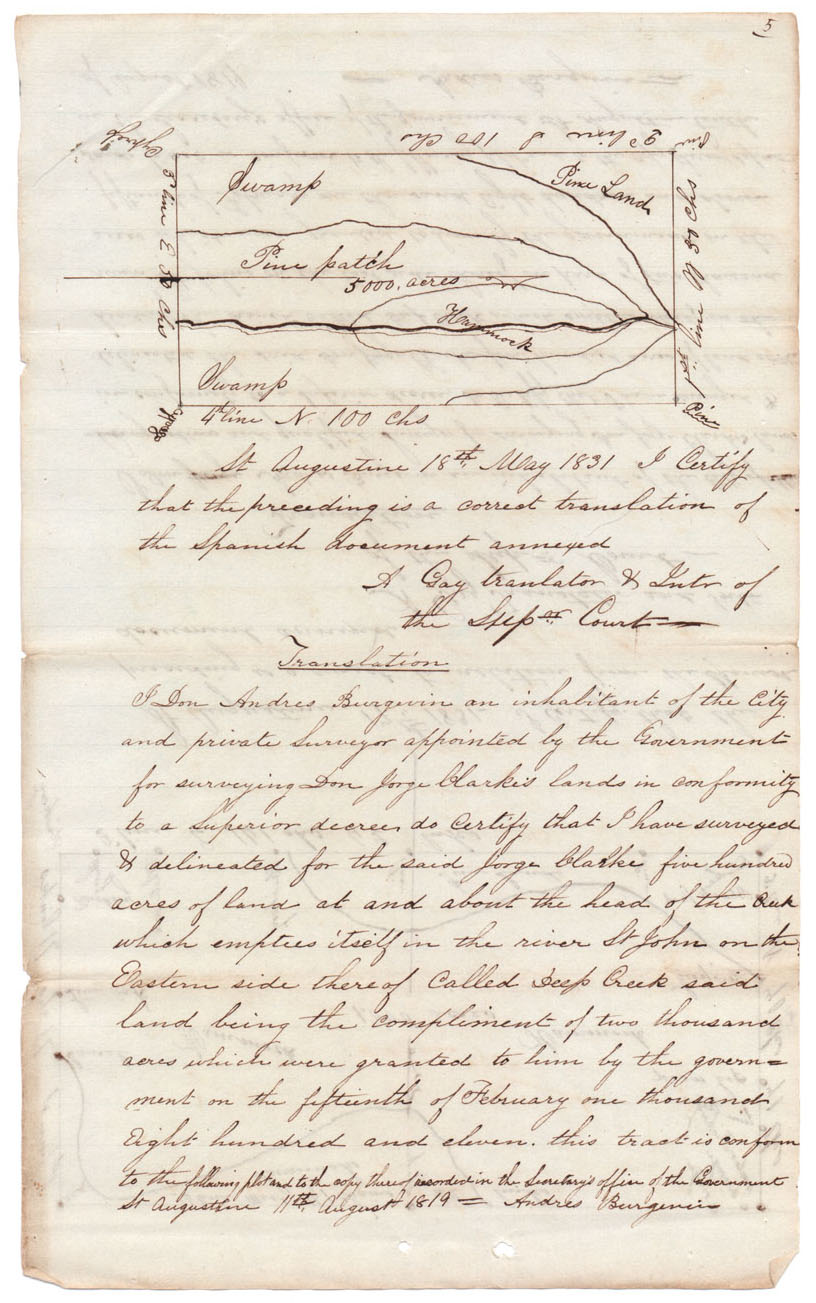 5
Cypress
2d line S 100 chs
Pine
Swamp
Pine Land
3d line E 50 Chs
1st line W 50 Chs
Pine patch
5000. acres
Hammock
Swamp
Cypress
4th line N. 100 chs
Pine
St Augustine 18th May 1831 I Certify
that the preceding is a correct translation of
the Spanish document annexed
A Gay translator & Intr of
the Supr Court
Translation
I Don Andres Burgevin an inhabitant of the City
and private Surveyor appointed by the Government
for surveying Don Jorge Clarke's lands in conformity
to a Superior decree, do Certify that I have surveyed
& delineated for the said Jorge Clarke five hundred
acres of land at and about the head of the Creek
which emptees itself in the river St John on the
Eastern side thereof Called Deep Creek said
land being the compliment of two thousand
acres which were granted to him by the govern=
ment on the fifteenth of February one thousand
Eight hundred and eleven. this tract is conform
to the following plot and to the copy thereof recorded in the Secretary's office of the Government
St Augustine 11th August 1819 = Andres Burgevin